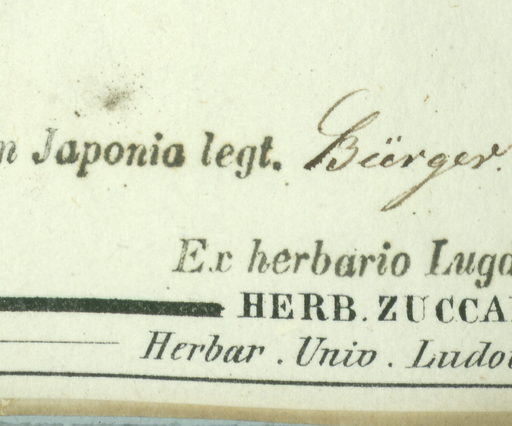 n Japonia legt. Bürger.
Ex herbario Lugd
HERB. ZUCCA
Herbar. Univ. Ludo